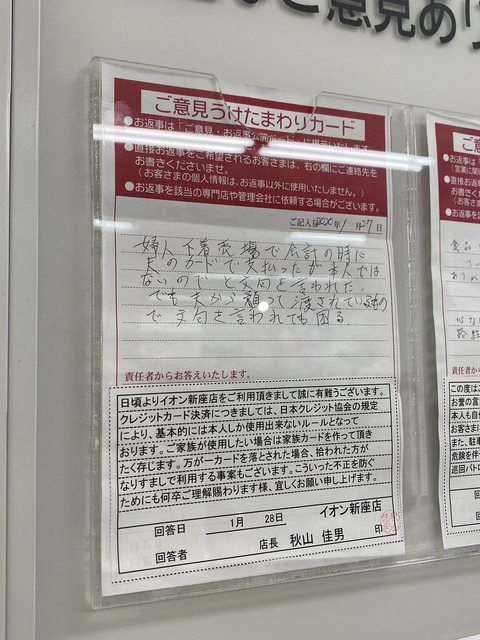 ご意見あ
ご意見うけたまわりカード
●お返事は「ご意見・お返事公開ボード」に掲示いたします。
●直接お返事をご希望されるお客さまは、右の欄にご連絡先を
お書きくださいませ。
(お客さまの個人情報は、お返事以外に使用いたしません。)
●お返事を該当の専門店や管理会社に依頼する場合がございます。
ご記入日2020年1月27日
婦人下着売場で会計の時に
夫のカードで支払ったが本人では
ないのでと文句を言われた。
でも夫から頼って渡されているもの
で文句を言われても困る
責任者からお答えいたします。
日頃よりイオン新座店をご利用頂きまして誠に有難うございます。
クレジットカード決済につきましては、日本クレジット協会の規定
により、基本的には本人しか使用出来ないルールとなって
おります。ご家族が使用したい場合は家族カードを作って頂き
たく存じます。万が一カードを落とされた場合、拾われた方が
なりすましで利用する事案もございます。こういった不正を防ぐ
ためにも何卒ご理解賜わります様、宜しくお願い申し上げます。
イオン新座店
回答日 1月 28日
回答者 店長 秋山 佳男 印
ご意
●お返事は
(営業に関
●直接お返
お書きく
(お客さま
●お返事を
食品
ありが
路
責任者から
この度は
お誉の言
本人も自
お客さま
また、駐
危険を伴
巡回パトロ
回答
回答